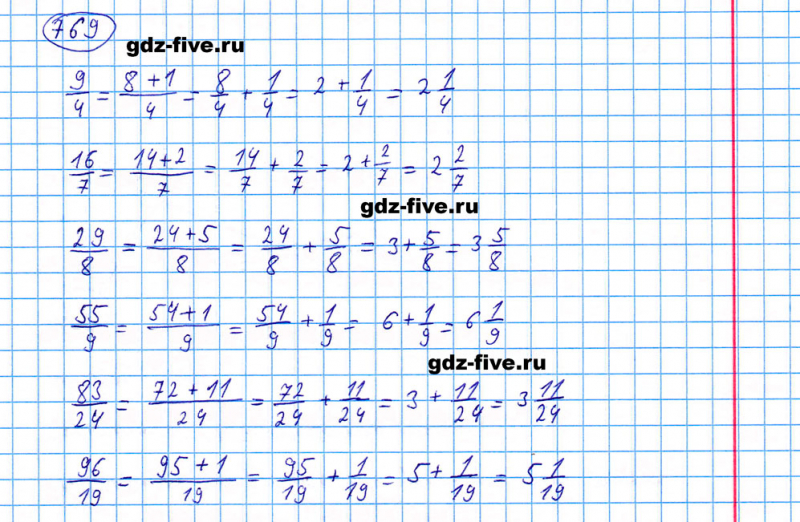 769
gdz-five.ru
9/4 = (8+1)/4 = 8/4 + 1/4 = 2 + 1/4 = 2 1/4
16/7 = (14+2)/7 = 14/7 + 2/7 = 2 + 2/7 = 2 2/7
gdz-five.ru
29/8 = (24+5)/8 = 24/8 + 5/8 = 3 + 5/8 = 3 5/8
55/9 = (54+1)/9 = 54/9 + 1/9 = 6 + 1/9 = 6 1/9
gdz-five.ru
83/24 = (72+11)/24 = 72/24 + 11/24 = 3 + 11/24 = 3 11/24
96/19 = (95+1)/19 = 95/19 + 1/19 = 5 + 1/19 = 5 1/19